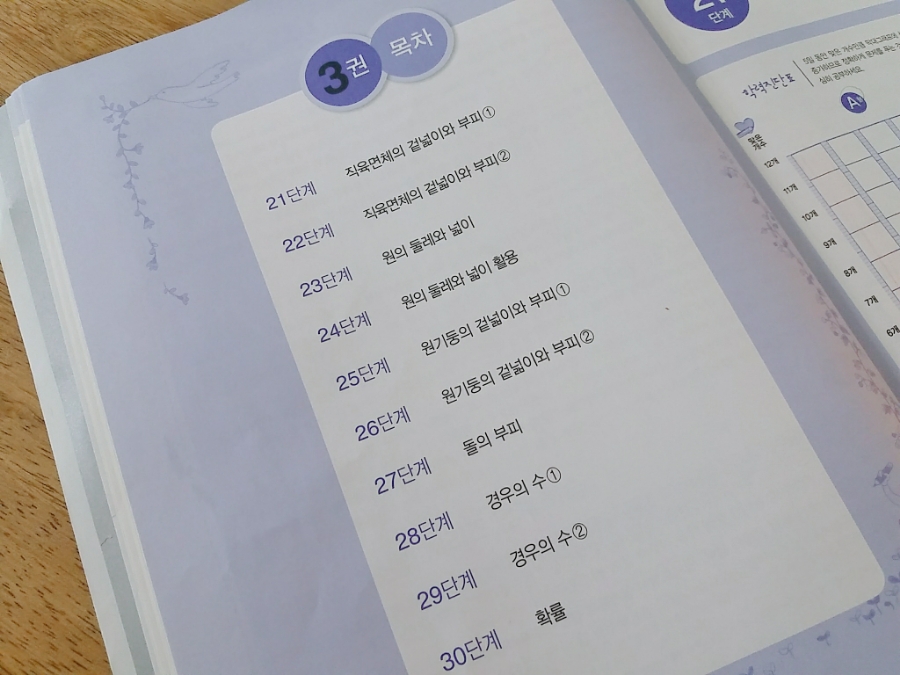 3권 목차
21단계 직육면체의 겉넓이와 부피①
22단계 직육면체의 겉넓이와 부피②
23단계 원의 둘레와 넓이
24단계 원의 둘레와 넓이 활용
25단계 원기둥의 겉넓이와 부피①
26단계 원기둥의 겉넓이와 부피②
27단계 돌의 부피
28단계 경우의 수①
29단계 경우의 수②
30단계 확률
단계
학력진단표
5일 동안 맞은 개수만큼
심히 공부하세요.
A
맞은
개수
12개
11개
10개
9개
8개
7개
6개